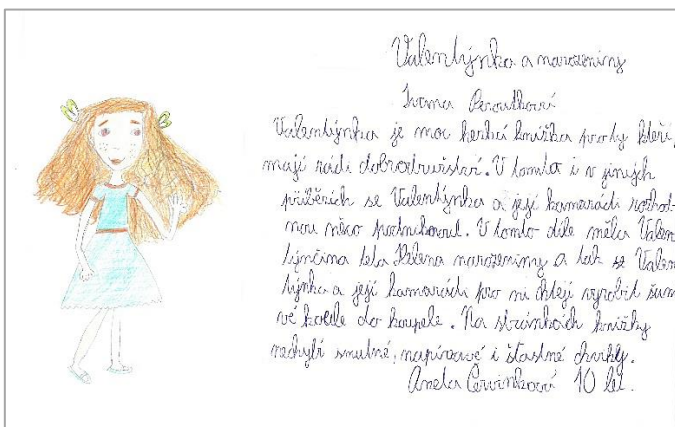 Valentýnka a narozeniny
Ivana Peroutková
Valentýnka je moc hezká knížka pro ty kteří,
mají rádi dobrodružství. V tomto i v jiných
příbězích se Valentýnka a její kamarádi rozhod-
nou něco podniknout. V tomto díle měla Valen
týnčina teta Helena narozeniny a tak se Valen
týnka a její kamarádi pro ni chtějí vyrobit šum
vé koule do koupele. Na stránkách knížky
nechybí smutné, napínavé i šťastné chvilky.
Anela Červinková 10 let.